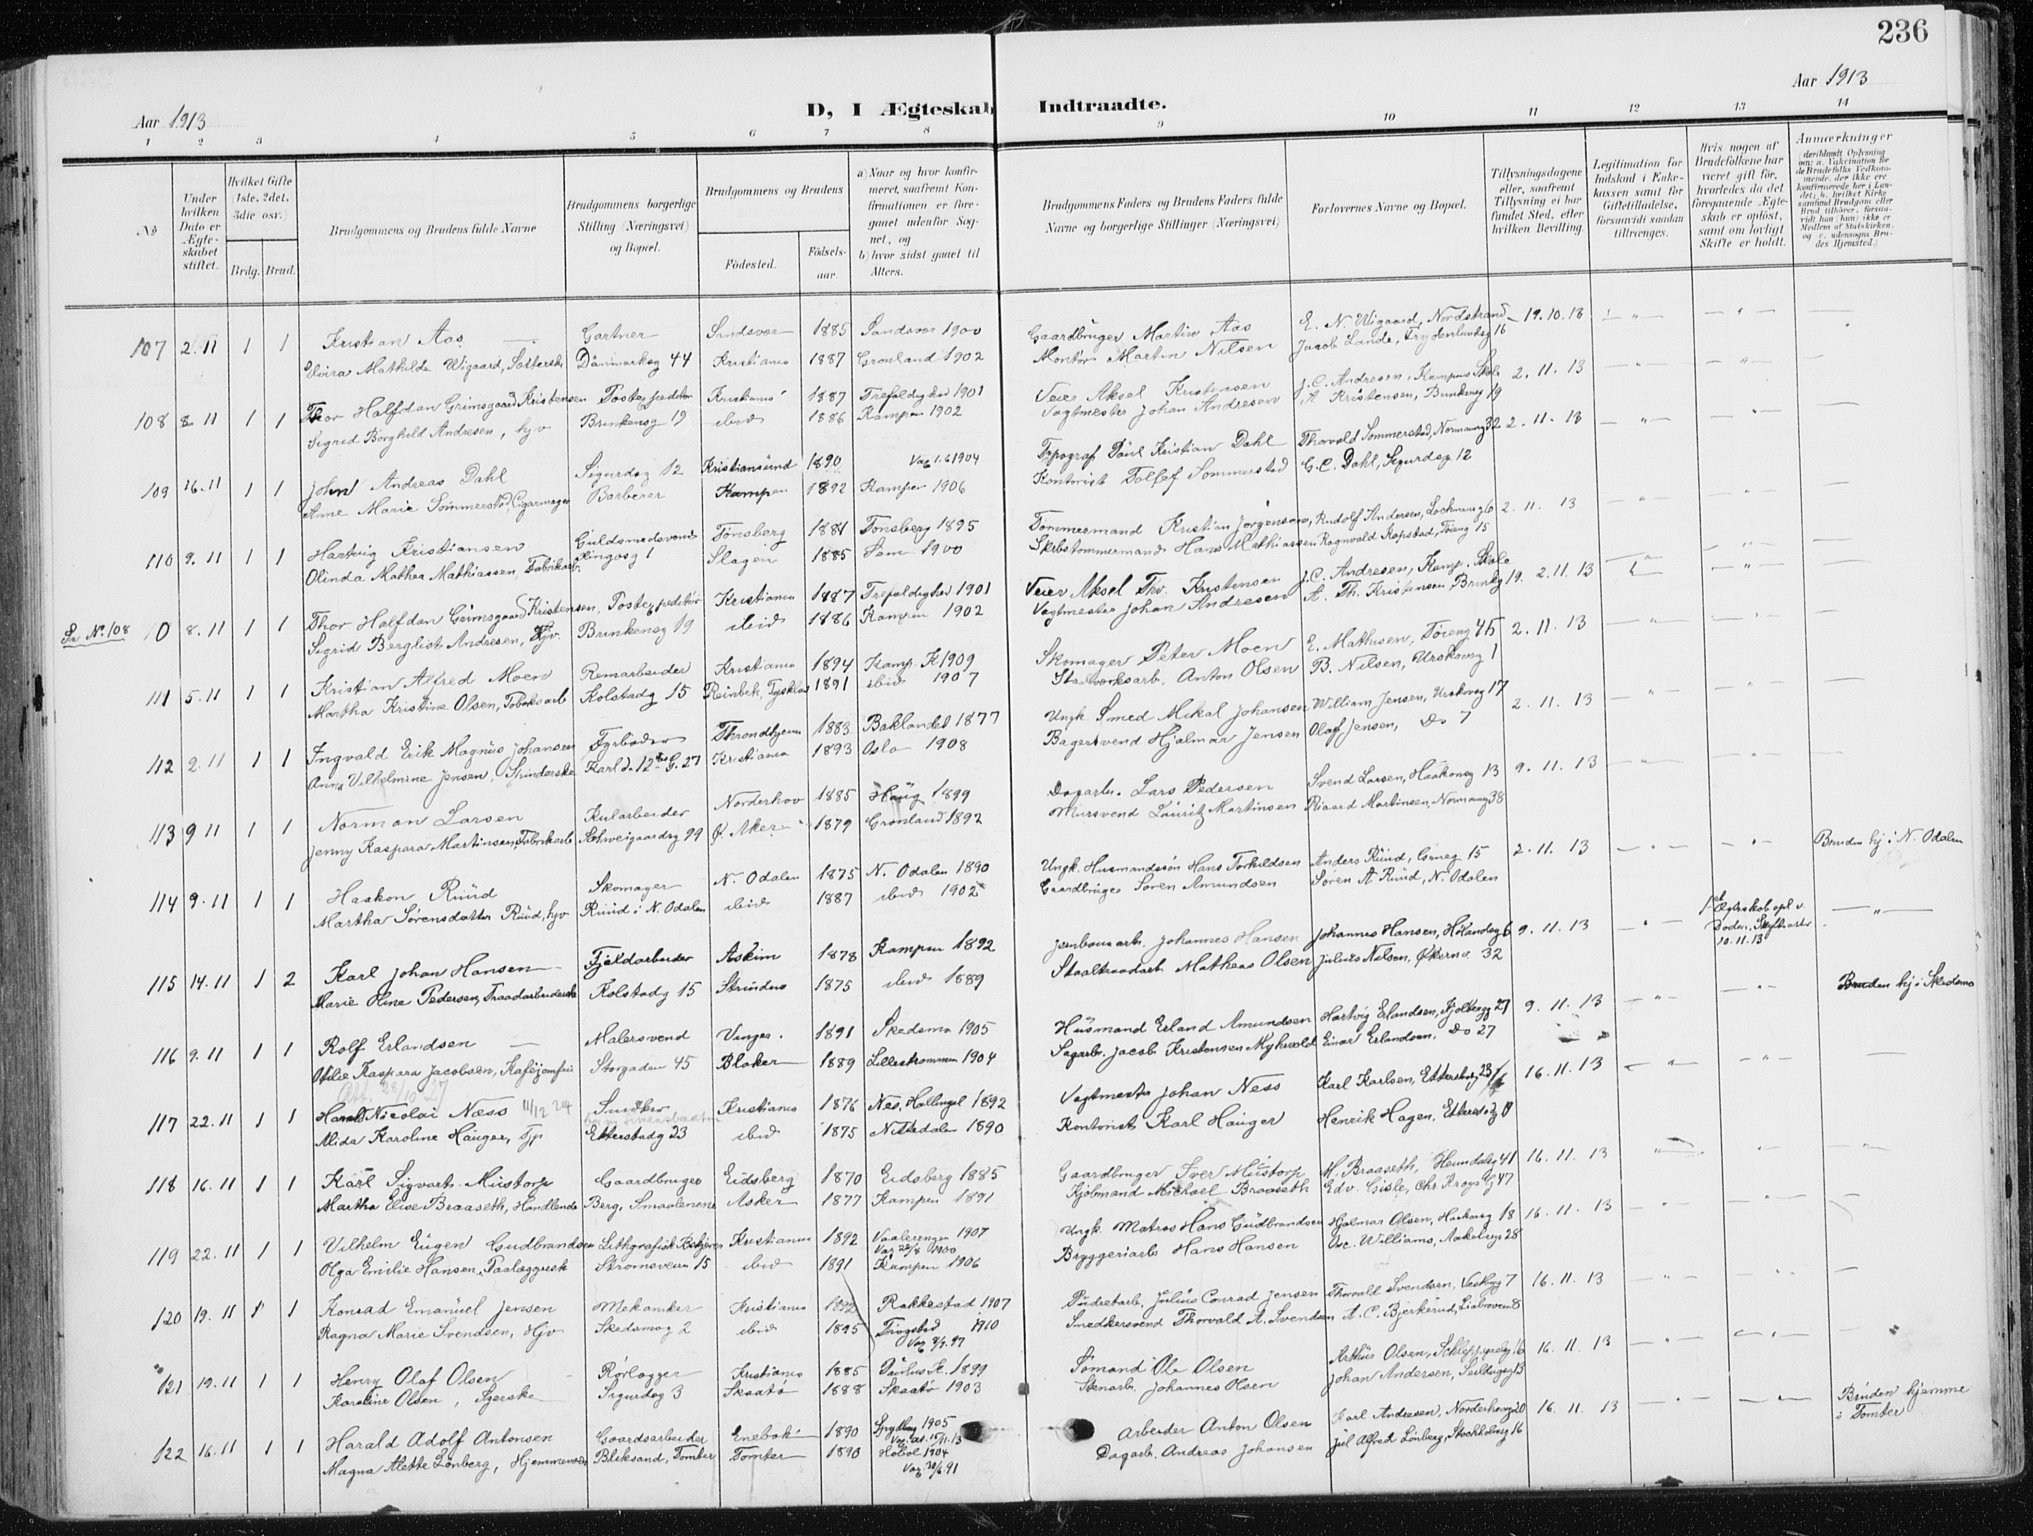 236
Aar 1913
Aar 1913
D, I Ægteskab Indtraadte.
1 2 3 4 5 6 7 8 9 10 11 12 13 14
No
Under hvilken Dato er Ægteskabet stiftet.
Hvilket Gifte 1ste, 2det, 3die osv.
Brdg. Brud.
Brudgommens og Brudens fulde Navne
Brudgommens borgerlige Stilling (Næringsvei) og Bopæl.
Brudgommens og Brudens
Födested.
Födselsaar.
a) Naar og hvor konfirmeret, saafremt Konfirmationen er foregaaet udenfor Sognet, og
b) hvor sidst gaaet til Alters.
Brudgommens Faders og Brudens Faders fulde Navne og borgerlige Stillinger (Næringsvei)
Forlovernes Navne og Bopæl.
Tillysningsdagene eller, saafremt Tillysning ei har fundet Sted, efter hvilken Bevilling.
Legitimation for Indskud i Enkekassen samt for Giftetilladelse, forsaavidt saadan tiltrænges.
Hvis nogen af Brudefolkene har været gift för, hvorledes da det foregaaende Ægteskab er oplöst, samt om lovligt Skifte er holdt.
Anmærkninger
107 2.11 1 1 Kristian Aas Gartner Sandsvær 1885 Sandsvær 1900 Gaardbruger Martin Aas E. N. Wigaard, Nordstrand 19.10.13
Elvira Mathilde Wigaard, Danmarksg 44 Kristiania 1887 Grønland 1902 Montør Martin Nilsen Jacob Lande, Frydenlundsg 16
108 8 11 1 1 Thor Halfdan Grimsgaard Kristensen Postexpeditør Kristiania 1887 Trefoldighed 1901 Veier Aksel Kristensen J. C. Andresen, Kampens Skole 2.11.13
Sigrid Borghild Andresen, hjv. Brinkensg 19 ibid 1886 Kampen 1902 Vagtmester Johan Andresen A Kristensen, Brinkensg 19
109 16.11 1 1 John Andreas Dahl Sigurdsg 12 Kristiansund 1890 Vag 1904 Typograf Paul Kristian Dahl Thorvald Sommerstad, Normannsg 32 2.11.13
Anne Marie Sommerstad, Cigarmager Barberer Kampen 1892 Kampen 1906 Kontorist Tollef Sommerstad G. C. Dahl, Sigurdsg. 12
110 9.11 1 1 Hartvig Kristiansen Guldsmedsvend Tønsberg 1884 Tønsberg 1895 Tømmermand Kristian Jørgensen, Rudolf Andersen, 2.11.13
Olinda Mathea Mathiassen, Fabrikarb. Kingosg 1 Slagen 1885 Sem 1900 Skibstømmermand Hans Mathiassen Ragnvald Kopstad, Tøieng 15
Se No. 108 8.11 1 1 Thor Halfdan Grimsgaard Kristensen, Postexpeditør Kristiania 1887 Trefoldighed 1901 Veier Aksel Th. Kristensen J. C. Andresen, Kamp. Skole 2.11.13
Sigrid Berglist Andresen, Hjv. Brinkensg 19 ibid 1886 Kampen 1902 Vagtmester Johan Andresen A. Th. Kristensen Brinkg 19.
111 5.11 1 1 Kristian Alfred Moen Remarbeider Kristiania 1894 Kamp. K 1909 Skomager Peter Moen E. Mathisen, Tøieng 45 2.11.13
Martha Kristine Olsen, Tobaksarb Kolstadg 15 Reinbek, Tyskland 1891 ibid 1907 Anton Olsen B. Nilsen, Urskovsg 1
112 2.11 1 1 Ingvald Erik Magnus Johansen Fyrbøder Throndhjem 1883 Baklandet 1877 Ungk. Smed Mikal Johansen William Jensen, Urskovsg 17 2.11.13
Anna Vilhelmine Jensen, Spinderske Karl d. 12tes G. 27 Kristiania 1893 Oslo 1908 Bagersvend Hjalmar Jensen Olaf Jensen, Do 7
113 9 11 1 1 Norman Larsen Kularbeider Norderhov 1885 Haug 1899 Dagarb. Lars Pedersen Svend Larsen, Haakonsg 13 9.11.13
Jenny Kaspara Martinsen, Fabrikarb Schweigaardsg 99 Ø. Aker 1879 Grønland 1892 Mursvend Lauritz Martinsen Rikard Martinsen, Normannsg 38
114 9.11 1 1 Haakon Ruud Skomager N. Odalen 1875 N. Odalen 1890 Ungk. Husmandssøn Hans Torkildsen Anders Ruud, 15 2.11.13 Bruden hj. i N. Odalen
Martha Sørensdatter Ruud, hjv. Ruud i N. Odalen ibid 1887 ibid 1902 Gaardbruger Søren Amundsen Søren A Ruud, N. Odalen
115 14.11 1 2 Karl Johan Hansen Fjeldarbeider Askim 1878 Kampen 1892 Jernbanearb. Johannes Hansen Johannes Hansen, Hølandsg 6 9.11.13 1ste Ægteskab opl. v. Døden. Skifteattest 10.11.13
Marie Oline Pedersen, Traadarbeiderske Kolstadg 15 Strinden 1875 ibid 1889 Staaltraadarb. Mathias Olsen Julius Nilsen, Økernv. 32
116 9.11 1 1 Rolf Erlandsen Malersvend Vinger. 1891 Skedsmo 1905 Husmand Erland Amundsen Hartvig Erlandsen, Fjeldbergg 27 9.11.13 Bruden hj. i Skedsmo
Otilie Kaspara Jacobsen, Kaféjomfru Storgaden 45 Blaker 1889 Lillestrømmen 1904 Sagarb. Jacob Kristensen Myhrvold Einar Erlandsen, Do 27
117 22.11 1 1 Harald Nicolai Næss 11/12 24 Snedker Kristiania 1876 Nes, Hallingd 1892 Vagtmester Johan Ness Karl Karlsen, Etterstadg 23 16.11.13
Alida Karoline Hauger, Tjp Etterstadg 23 ibid 1875 Nittedalen 1890 Kontorist Karl Hauger Henrik Hagen, Etterstadg 19
118 16.11 1 1 Karl Sigvart Mustorp Gaardbruger Eidsberg 1870 Eidsberg 1885 Gaardbruger Iver Mustorp M. Braaseth, Heimdalsg 41 16.11.13
Martha Elise Braaseth, Handlende Berg, Smaalenene Asker 1877 Kampen 1891 Kjøbmand Michael Braaseth Edv. Gisle, Chr. Kroghs G 47
119 22.11 1 1 Vilhelm Eugen Gudbrandsen Lithografisk Betjener Kristiania 1892 Vaalerengen 1907 Ungk. Matros Hans Gudbrandsen Hjalmar Olsen, Haakonsg 18 16.11.13
Olga Emilie Hansen, Paalæggerske Strømsveien 15 ibid 1891 Kampen 1906 Bryggeriarb Hans Hansen Osc. Williams, Aakebergv 28
120 19.11 1 1 Konrad Emanuel Jensen Mekaniker Kristiania 1892 Rakkestad 1907 Pudretarb. Julius Conrad Jensen Thorvald Svendsen, Vestbyg 7 16.11.13
Ragna Marie Svendsen, Hjv Skedsmog 2 ibid 1895 Trøgstad 1910 Snedkersvend Thorvald A. Svendsen A. C. Bjerkerud, Liabroveien 8
121 19.11 1 1 Henry Olaf Olsen Rørlægger Kristiania 1885 Paulus K. 1899 Sømand Ole Olsen Arthur Olsen, Schleppegrelsg 16 16.11.13
Karoline Olsen, Syerske Sigurdsg 3 Skaatø 1888 Skaatø 1903 Stenarb. Johannes Olsen Johan Andersen, Seilduksg 13
122 16.11 1 1 Harald Adolf Antonsen Gaardsarbeider Enebak 1890 Spydberg 1905 Arbeider Anton Olsen Karl Andresen, Norderhovsg 20 16.11.13 Bruden hjemme i Tomter
Magna Alette Lønberg, Hjemmeværende Bliksand, Tomter Tomter 1890 Hobøl 1904 Dagarb. Andreas Johansen Jul Alfred Lønberg, Stockholmsg 16